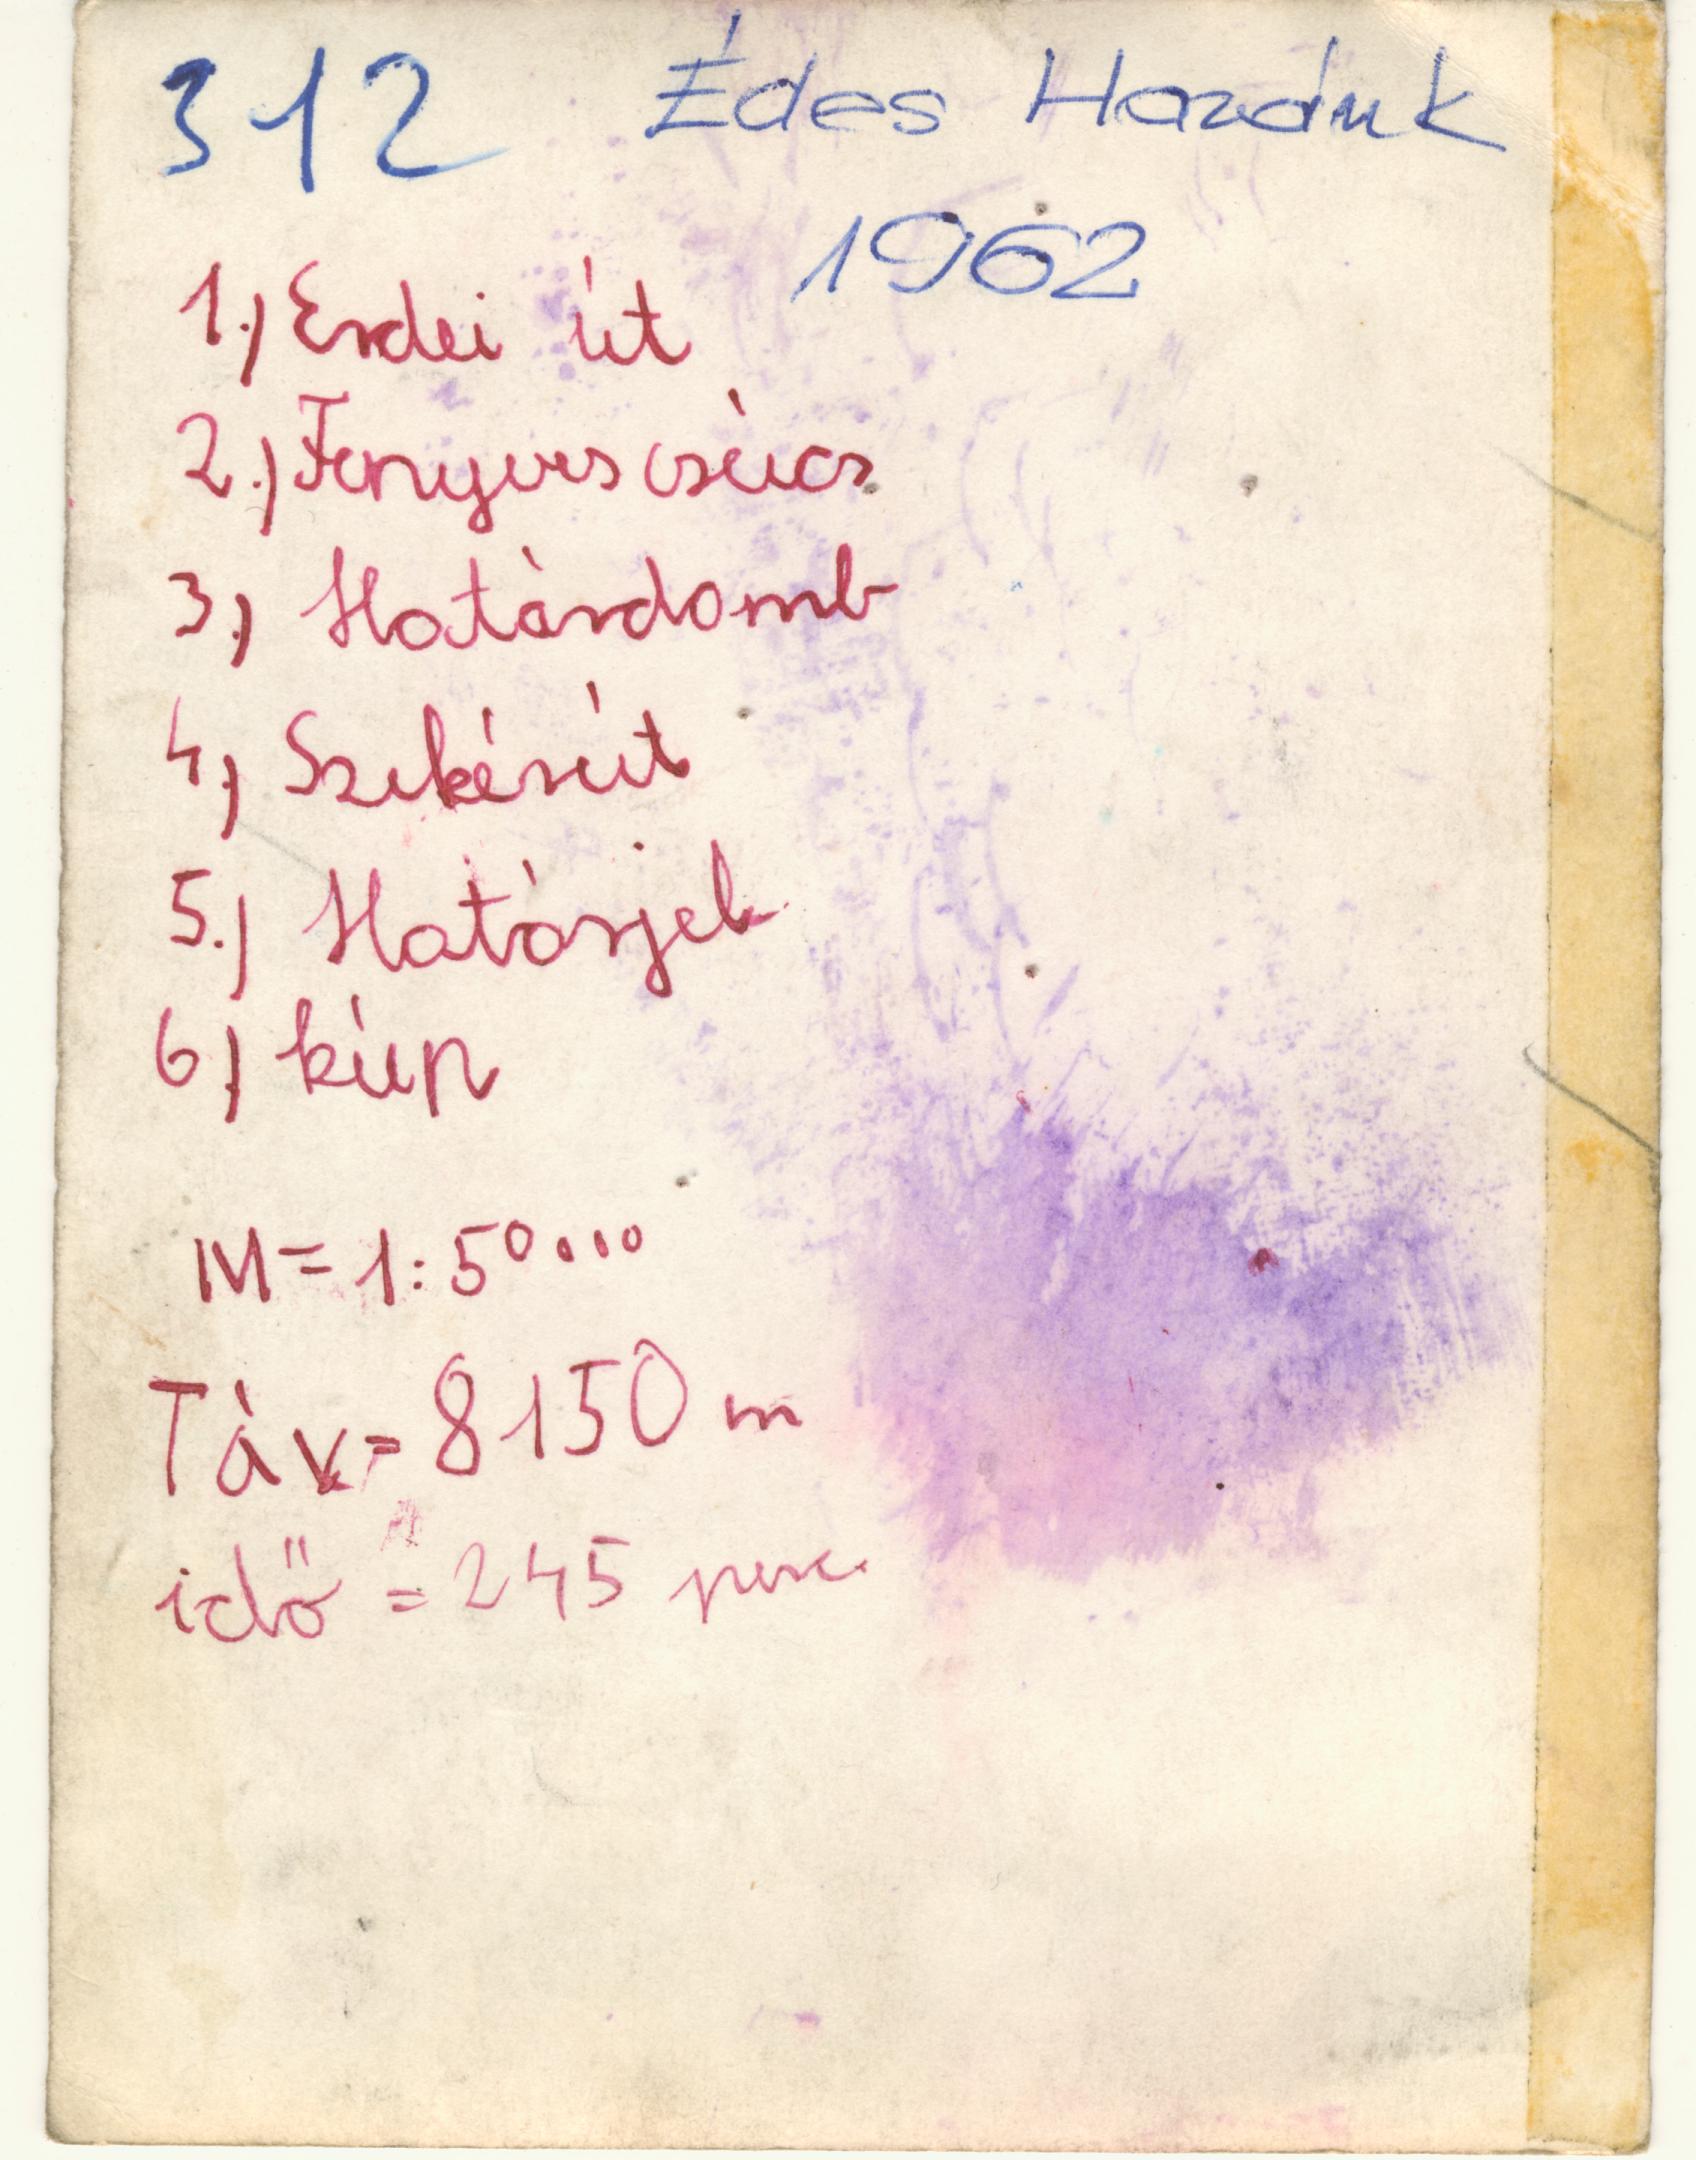 312 Édes Hazánk
1962
1.) Erdei út
2.) Fenyves csúcs
3.) Határdomb
4.) Szekérút
5.) Határjel
6.) kúp
M = 1:50000
Táv = 8150 m
idő = 245 perc